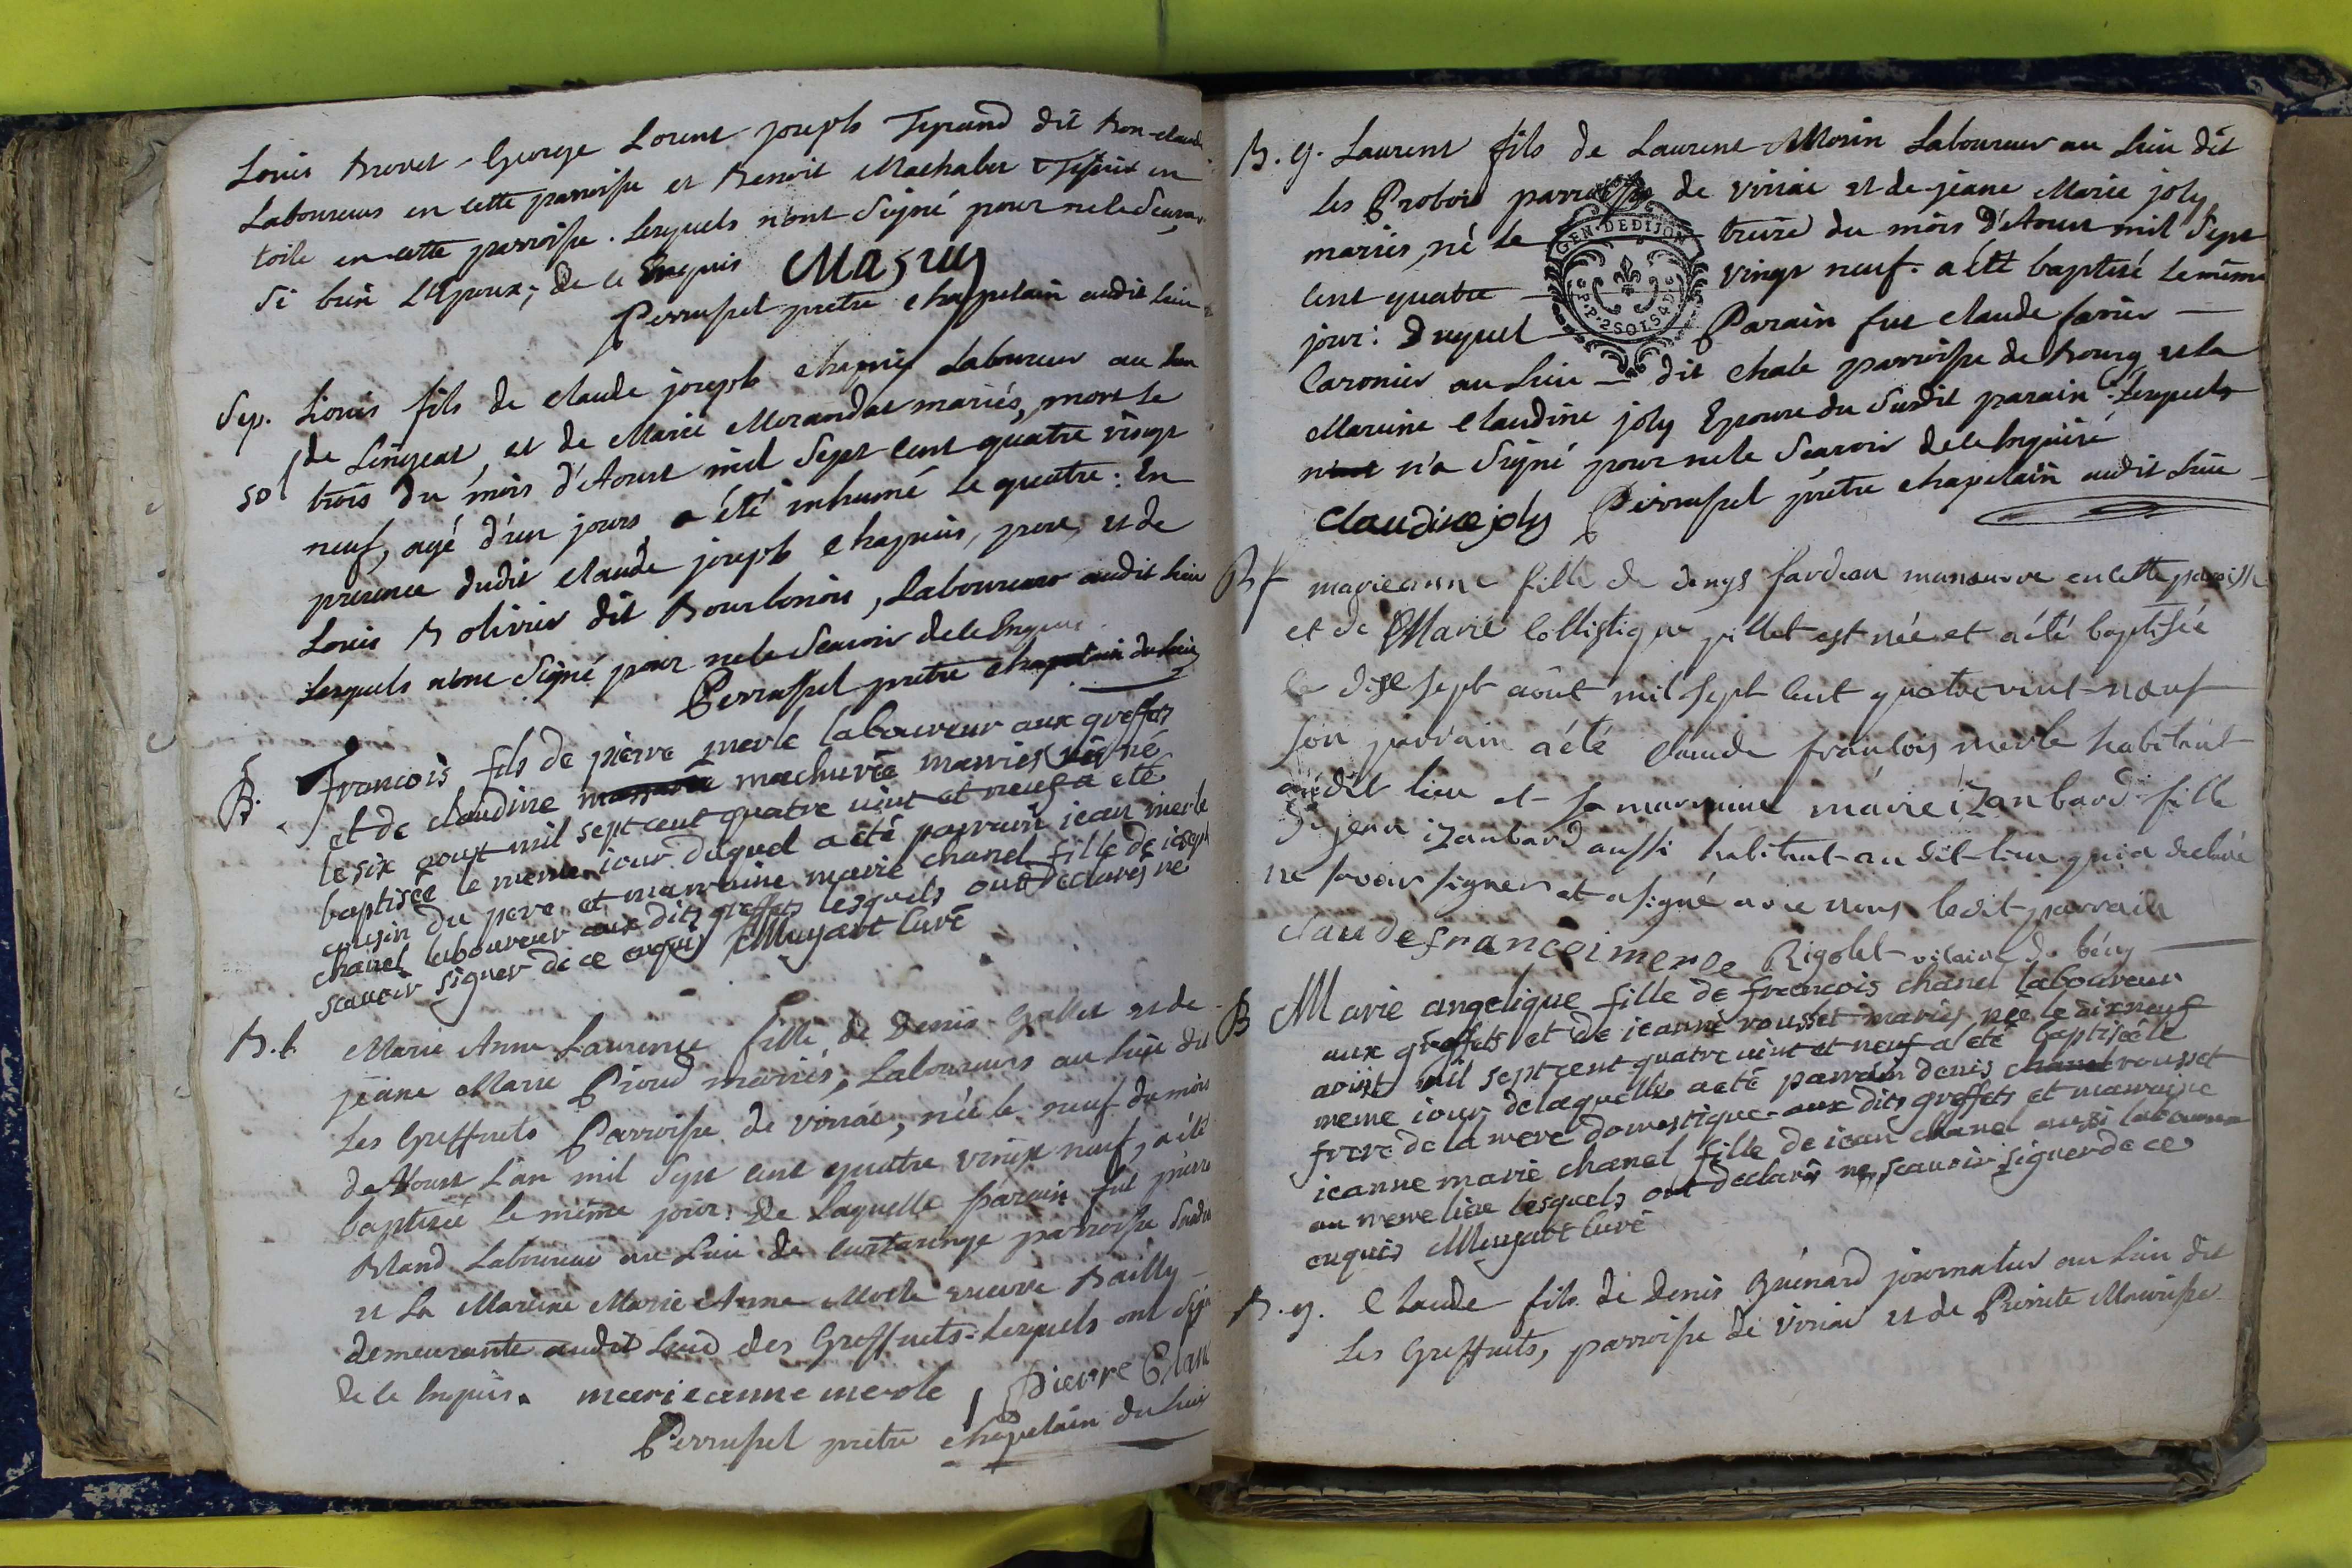 Louis Brovet - George Lorent joseph Tyrand dit bon-claude
Laboureurs en cette parroisse et Benoit Machaber Tissieux en
toile en cette parroisse. Lesquels n'ont signé pour ne le sçavoir
si bien l'Epoux; de ce Enquis Masuy
Perrussel pretre chappelain audit lieu
Sep. Louis fils de Claude joseph chapuis Laboureur au lieu
de Lingeat, et de Marie Morandat mariés, mort le
50 trois du mois d'Aoust mil Sept cent quatre vingt
neuf, agé d'un jours, a été inhumé le quatre: En
presence dudit Claude joseph chapuis, pere, et de
Louis Bolivier dit Bourbonois, Laboureurs audit lieu
Lesquels n'ont Signé pour ne le Scavoir de ce Enquis
Perrussel pretre chapelain du lieu
B. francois fils de pierre merle laboureur aux greffets
et de claudine machurée marries né
le six aoust mil sept cent quatre vint et neuf a eté
baptisée le meme iour duquel a eté parrain iean merle
cusin du pere et marraine marie chanel fille de ioseph
chanel laboureur aux dits greffets lesquels ont declarés ne
scavoir signer de ce enquis Muyart curé
B. f. Marie Anne Laurence fille de Denis Gallet et de
jeane Marie Pioud mariés, Laboureurs au lieu dit
Les Greffuets Parroisse de viriac, née le neuf du mois
de Aoust l'an mil Sept cent quatre vingt neuf, a été
baptisée le même jour: De Laquelle parain fut pierre
Bland Laboureur au Lieu de Curtaringe parroisse susdite
et La Mareine Marie Anne Merle veuve Bailly
demeurante audit Lieu des Greffuets: Lesquels ont signé
de ce Enquis. marieanne merle pierre Blanc
Perrussel pretre chapelain du lieu
B. g. Laurent fils de Laurent Morin Laboureur au Lieu dit
Les Probois parroisse de viriac et de jeane Marie joly
mariés, né le treize du mois d'Aoust mil Sept
cent quatre vingt neuf. a été baptisé le même
jour: Duquel Parain fut claude favier
Caronier au Lieu dit chale parroisse de Bourg et la
Mareine Claudine joly Epouse du Susdit parain: Lesquels
n'ont n'a Signé pour ne le Scavoir de ce Enquise
claudine joly Perrussel pretre chapelain audit Lieu
B f marieanne fille de denys fardeau manœuvre en cette paroisse
et de Marie Collistique pillet est née et a été baptisée
le dixe sept août mil sept cent quatrevint-neuf
son parrain a été claude françois merle habitant
audit lieu et sa marraine marie izanbard fille
de jean izanbard aussi habitant au dit-lieu qui a declaré
ne savoir signer et a signé avec nous ledit parrain
claudefrancoimerle Rigolet vicaire de bény
B Marie angelique fille de francois chanel laboureur
aux greffets et de ieanne rousset mariés née le dixneuf
aoust mil sept cent quatre vint et neuf a eté baptisée le
meme iour de laquelle a eté parrain denis chanel rousset
frere de la mere domestique aux dits greffets et marraine
ieanne marie chanel fille de iean chanel aussi laboureur
au meme lieu lesquels ont declarés ne scavoir signer de ce
enquis Muyart Curé
B. g. Claude fils de Denis Guénard journalier au lieu dit
Les Greffuets, parroisse de viriac et de Pierrete Mauvisse